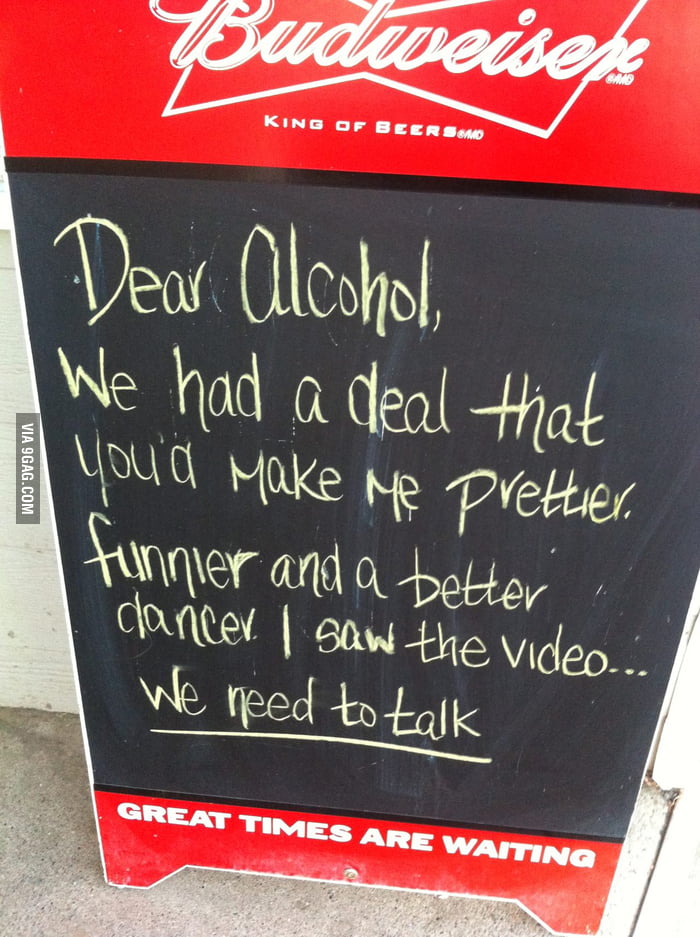 Budweiser
KING OF BEERS
Dear Alcohol,
We had a deal that
you'd make me prettier.
funnier and a better
dancer. I saw the video...
We need to talk
GREAT TIMES ARE WAITING
VIA 9GAG.COM